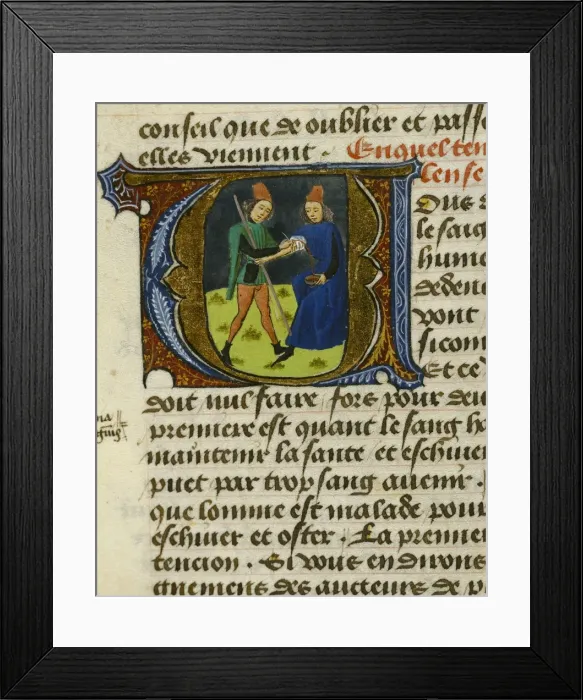 conseil que de oublier et passe
elles viennent . En quel tem
len se
Ous
le saig
hume
dedens
vont
sicom
Et ce
doit nul faire fors pour deu
premiere est quant le sang h
maintenir la sante et eschuer
puet par trop sang auenir .
que lomme est malade pour
eschuer et oster . La premier
tencion . Si vous en dirons
gnemens des aucteurs de p